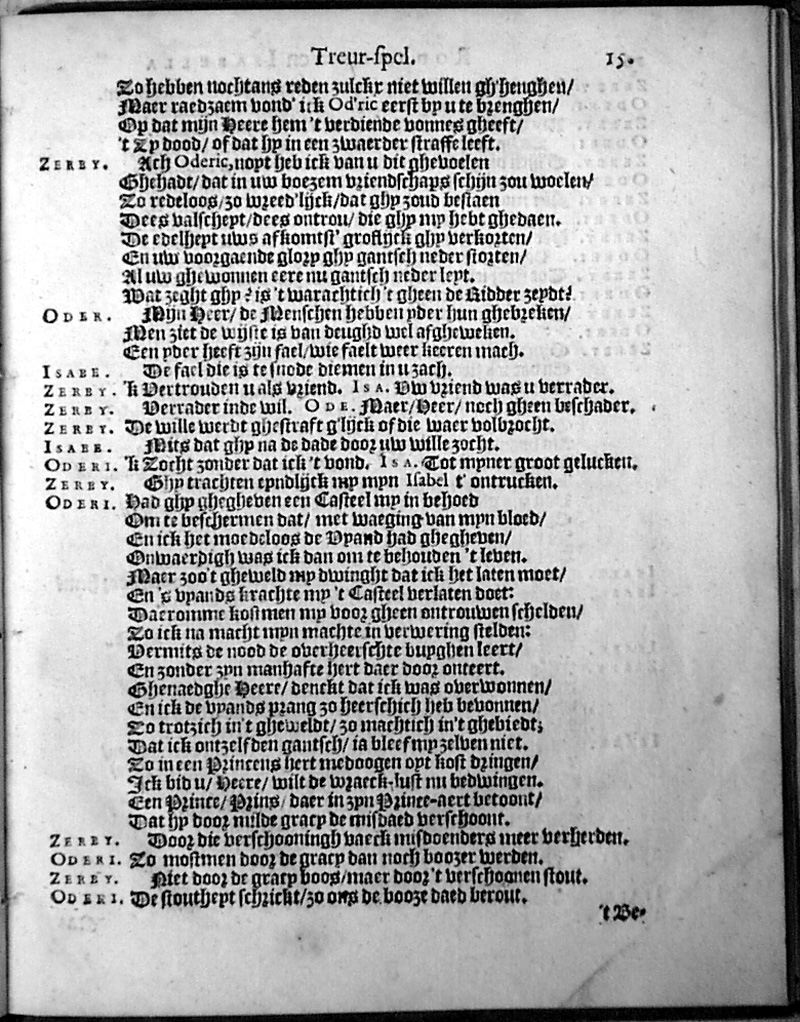 Treur-spel. 15.
Zo hebben nochtans reden zulckx niet willen gh'henghen/
Maer raedzaem vond' ick Od'ric eerst by u te brenghen/
Op dat mijn Heere hem 't verdiende vonnes gheeft/
't Zy dood/ of dat hy in een zwaerder straffe leeft.
ZERBY. Ach Oderic, noyt heb ick van u dit ghevoelen
Ghehadt/ dat in uw boezem vriendschaps schijn zou woelen/
Zo redeloos/ zo wreed'lijck/ dat ghy zoud bestaen
Dees valscheyt/ dees ontrou/ die ghy my hebt ghedaen.
De edelheyt uws afkomtst' groflijck ghy verkorten/
En uw voorgaende glory ghy gantsch neder storten/
Al uw ghewonnen eere nu gantsch neder leyt.
Wat zeght ghy? is 't warachtich 't gheen de Ridder zeydt?
ODER. Mijn Heer/ de Menschen hebben yder hun ghebreken/
Men ziet de wijste is van deughd wel afgheweken.
Een yder heeft zijn fael/ wie faelt weer keeren mach.
ISABE. De fael die is te snode diemen in u zach.
ZERBY. 'k Vertrouden u als vriend. ISA. Uw vriend was u verrader.
ZERBY. Verrader inde wil. ODE. Maer/ Heer/ noch gheen beschader.
ZERBY. De wille werdt ghestraft g'lijck of die waer volbrocht.
ISABE. Mits dat ghy na de dade door uw wille zocht.
ODERI. 'k Zocht zonder dat ick 't vond. ISA. Tot myner groot gelucken.
ZERBY. Ghy trachten eyndlijck my myn Isabel t' ontrucken.
ODERI. Had ghy ghegheven een Casteel my in behoed
Om te beschermen dat/ met waeging van myn bloed/
En ick het moedeloos de Vyand had ghegheven/
Onwaerdigh was ick dan om te behouden 't leven.
Maer zoo't gheweld my dwinght dat ick het laten moet/
En 's vyands krachte my 't Casteel verlaten doet:
Daeromme kostmen my voor gheen ontrouwen schelden/
Zo ick na macht myn machte in verwering stelden:
Vermits de nood de overheerschte buyghen leert/
En zonder zyn manhafte hert daer door onteert.
Ghenaedghe Heere/ denckt dat ick was overwonnen/
En ick de vyands prang zo heerschich heb bevonnen/
Zo trotzich in't gheweldt/ zo machtich in't ghebiedt;
Dat ick ontzelfden gantsch/ ia bleef my zelven niet.
Zo in een Princens hert medoogen oyt kost dringen/
Ick bid u/ Heere/ wilt de wraeck-lust nu bedwingen.
Een Prince/ Prins/ daer in zyn Prince-aert betoont/
Dat hy door milde gracy de misdaed verschoont.
ZERBY. Door die verschooningh vaeck misdoenders meer verherden.
ODERI. Zo mostmen door de gracy dan noch boozer werden.
ZERBY. Niet door de gracy boos/ maer door't verschoonen stout.
ODERI. De stoutheyt schrickt/ zo ons de booze daed berout.
't Be-